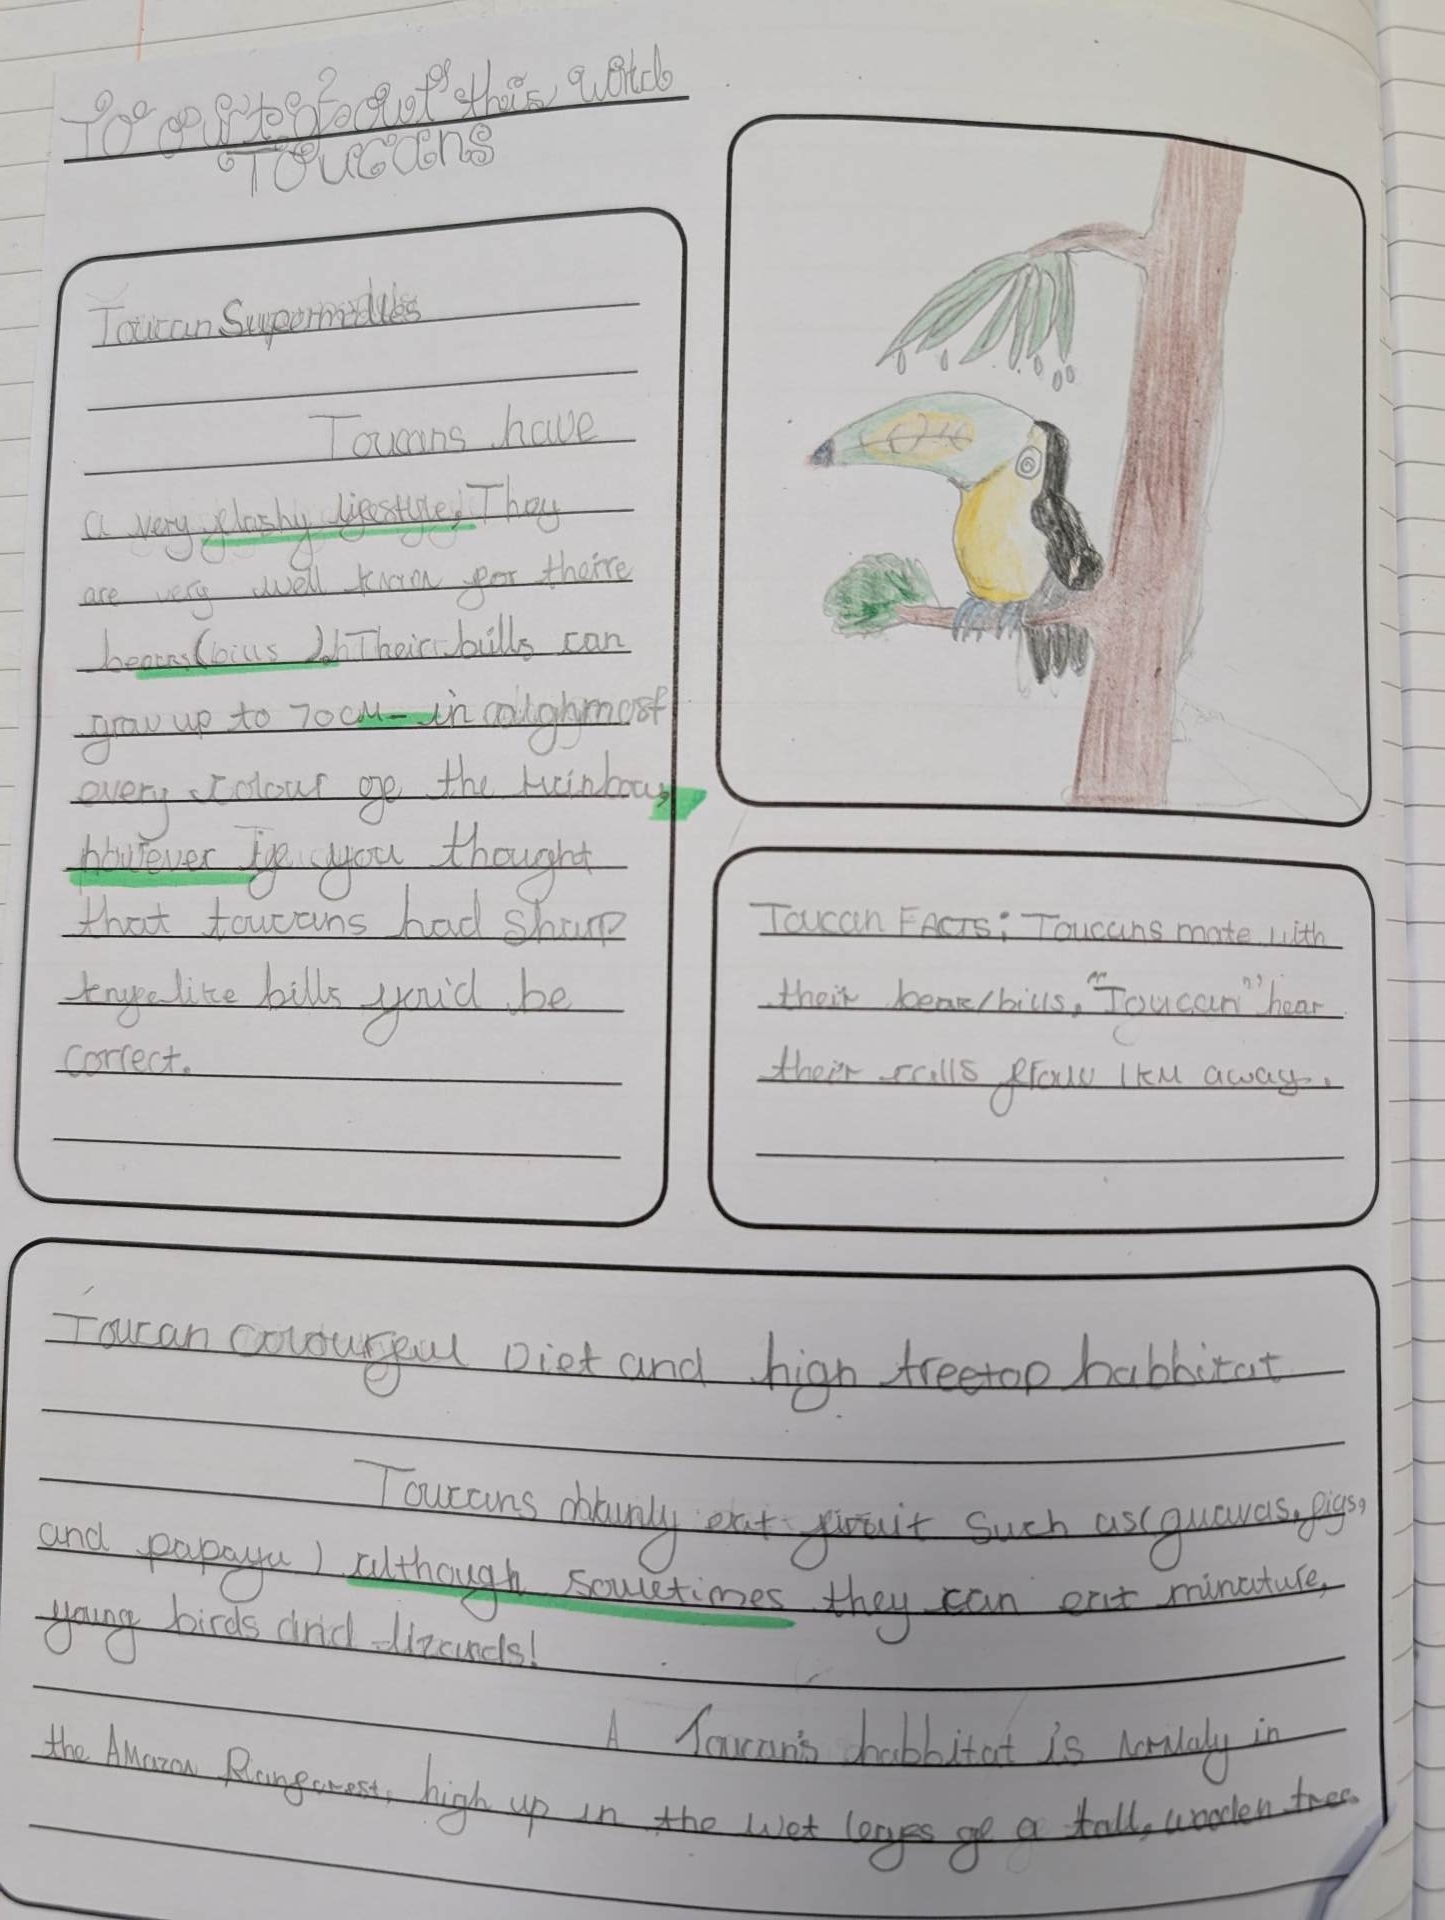 To out of this world
Toucans
Toucan Supermodles
Toucans have
a very flashy lifestyle, They
are very well known for theire
beaks (bills ). Their bills can
grow up to 70cm- in alghmost
every colour of the rainbow,
however If you thought
that toucans had sharp
knife like bills you'd be
correct.
Toucan FACTS: Toucans mate with
their beak/bills, "Toucan" hear
their calls from 1KM away.
Toucan colourful Diet and high treetop habbitat
Toucans mainly eat fruit such as (guavas, figs,
and papaya ) although sometimes they can eat minature,
young birds and lizards!
A Toucan's habbitat is normaly in
the Amazon Rainforest, high up in the wet leaves of a tall, wooden tree.